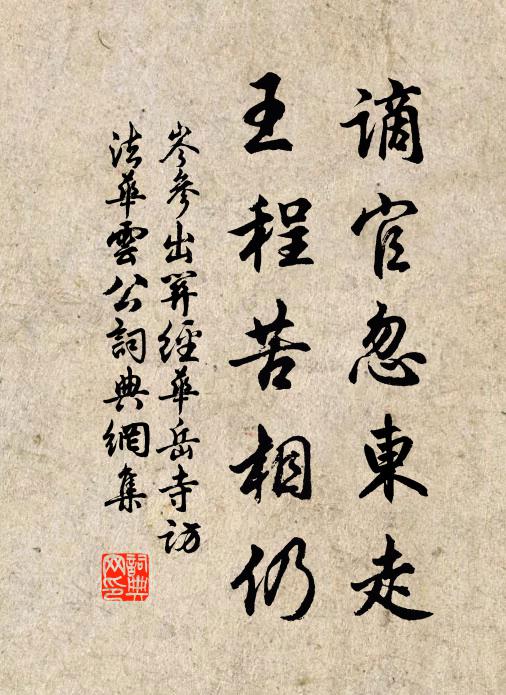 謫官忽東走
王程苦相仍
岑參出關經華岳寺訪
法華雲公詞典網集
詞典
网印